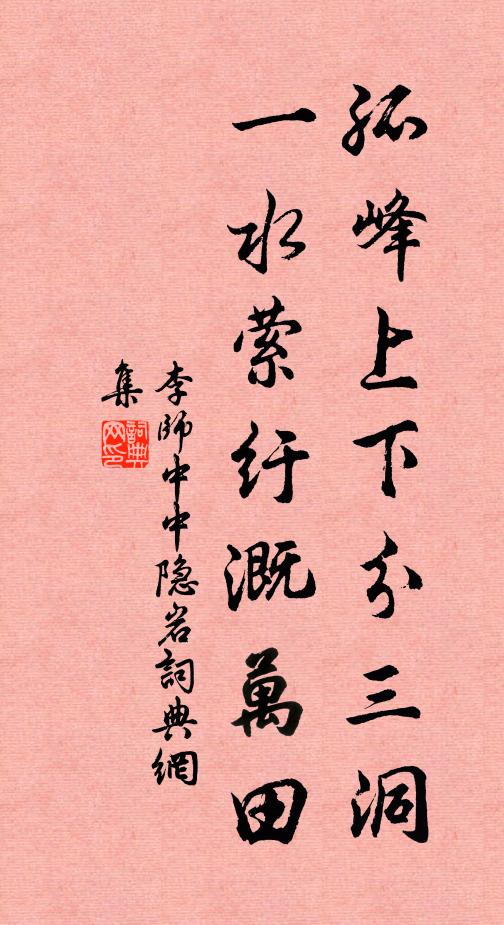 孤峰上下分三洞
一水萦纡溉萬田
李師中中隐岩詞典網
集
詞典
网印